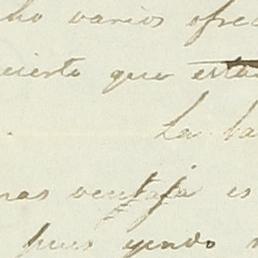 ho varios ofre
cierto que esta
La ba
nas ventaja es
pues yendo